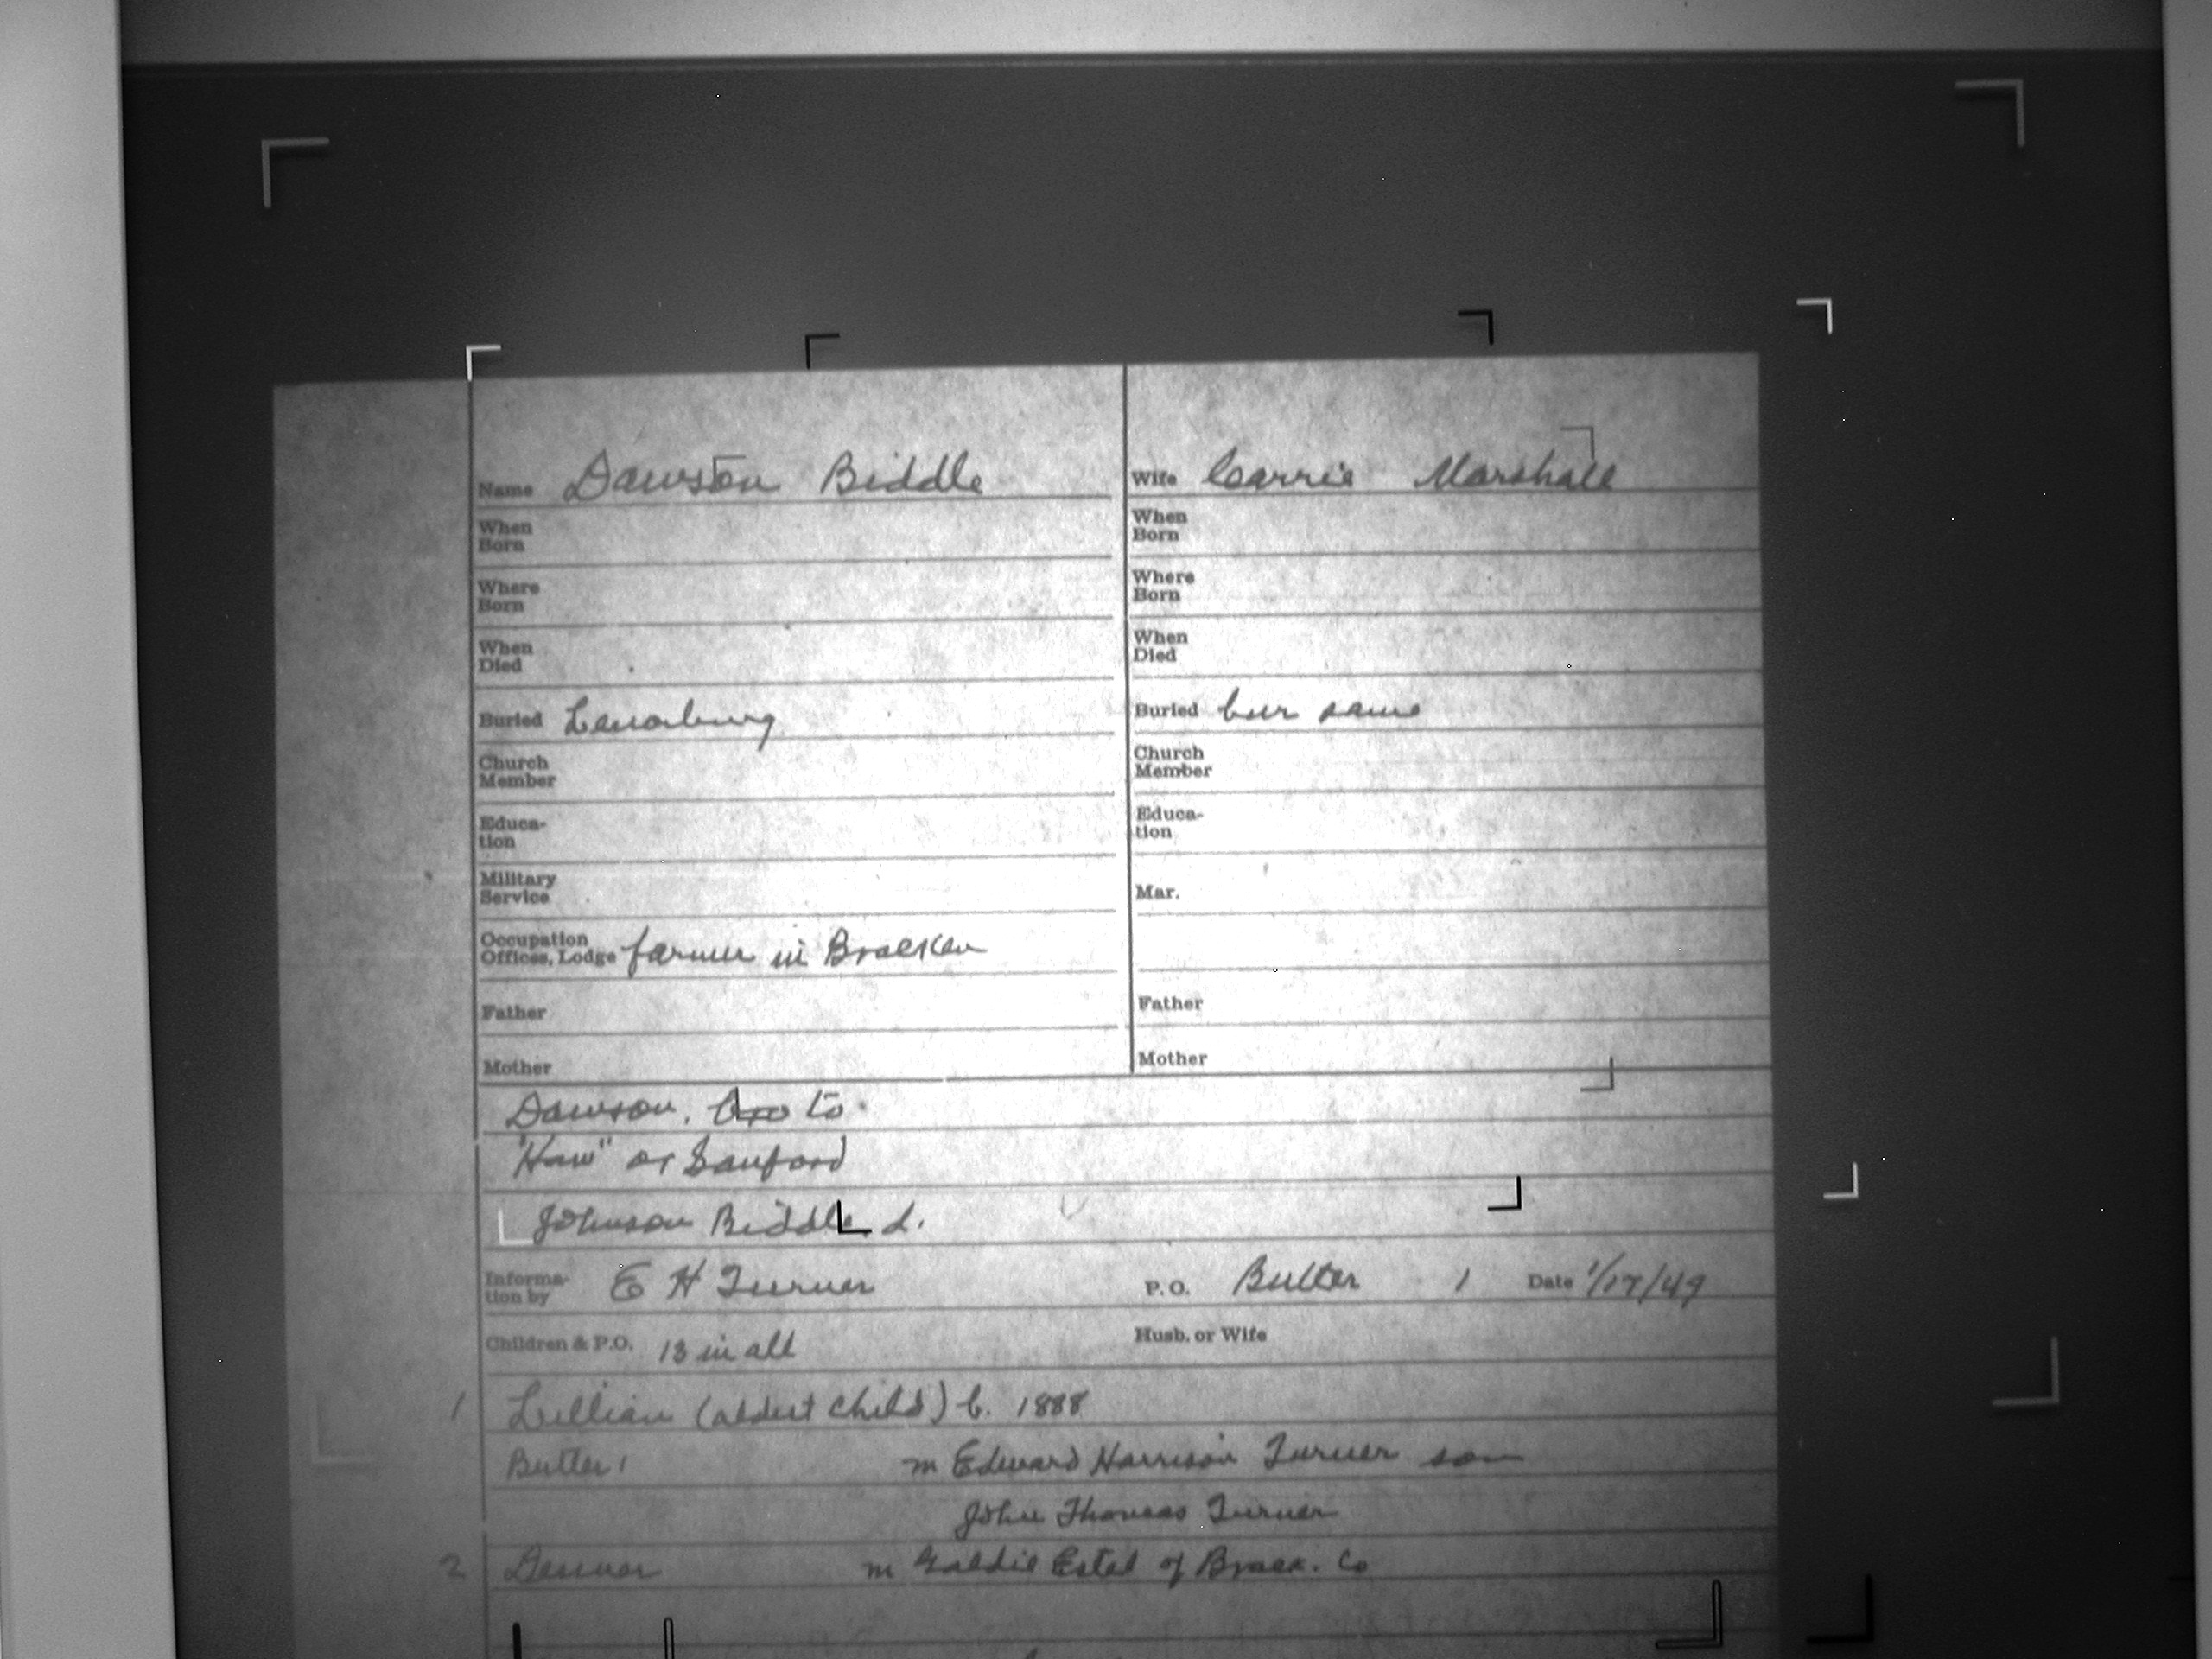 Name Dawson Biddle
Wife Carrie Marshall
When Born
When Born
Where Born
Where Born
When Died
When Died
Buried Lenoxburg
Buried bur same
Church Member
Church Member
Educa-
tion
Educa-
tion
Military Service
Mar.
Occupation
Offices, Lodge farmer in Bracken
Father
Father
Mother
Mother
Dawson. Bro to
or Sanford
Johnson Biddle d.
Informa-
tion by E H Turner P.O. Butler 1 Date 1/17/49
Children & P.O. 13 in all Husb. or Wife
1 Lillian (oldest child) b. 1888
Butler 1 m Edward Harrison Turner son
John Thomas Turner
2 Denver m Goldie Estel of Brack. Co